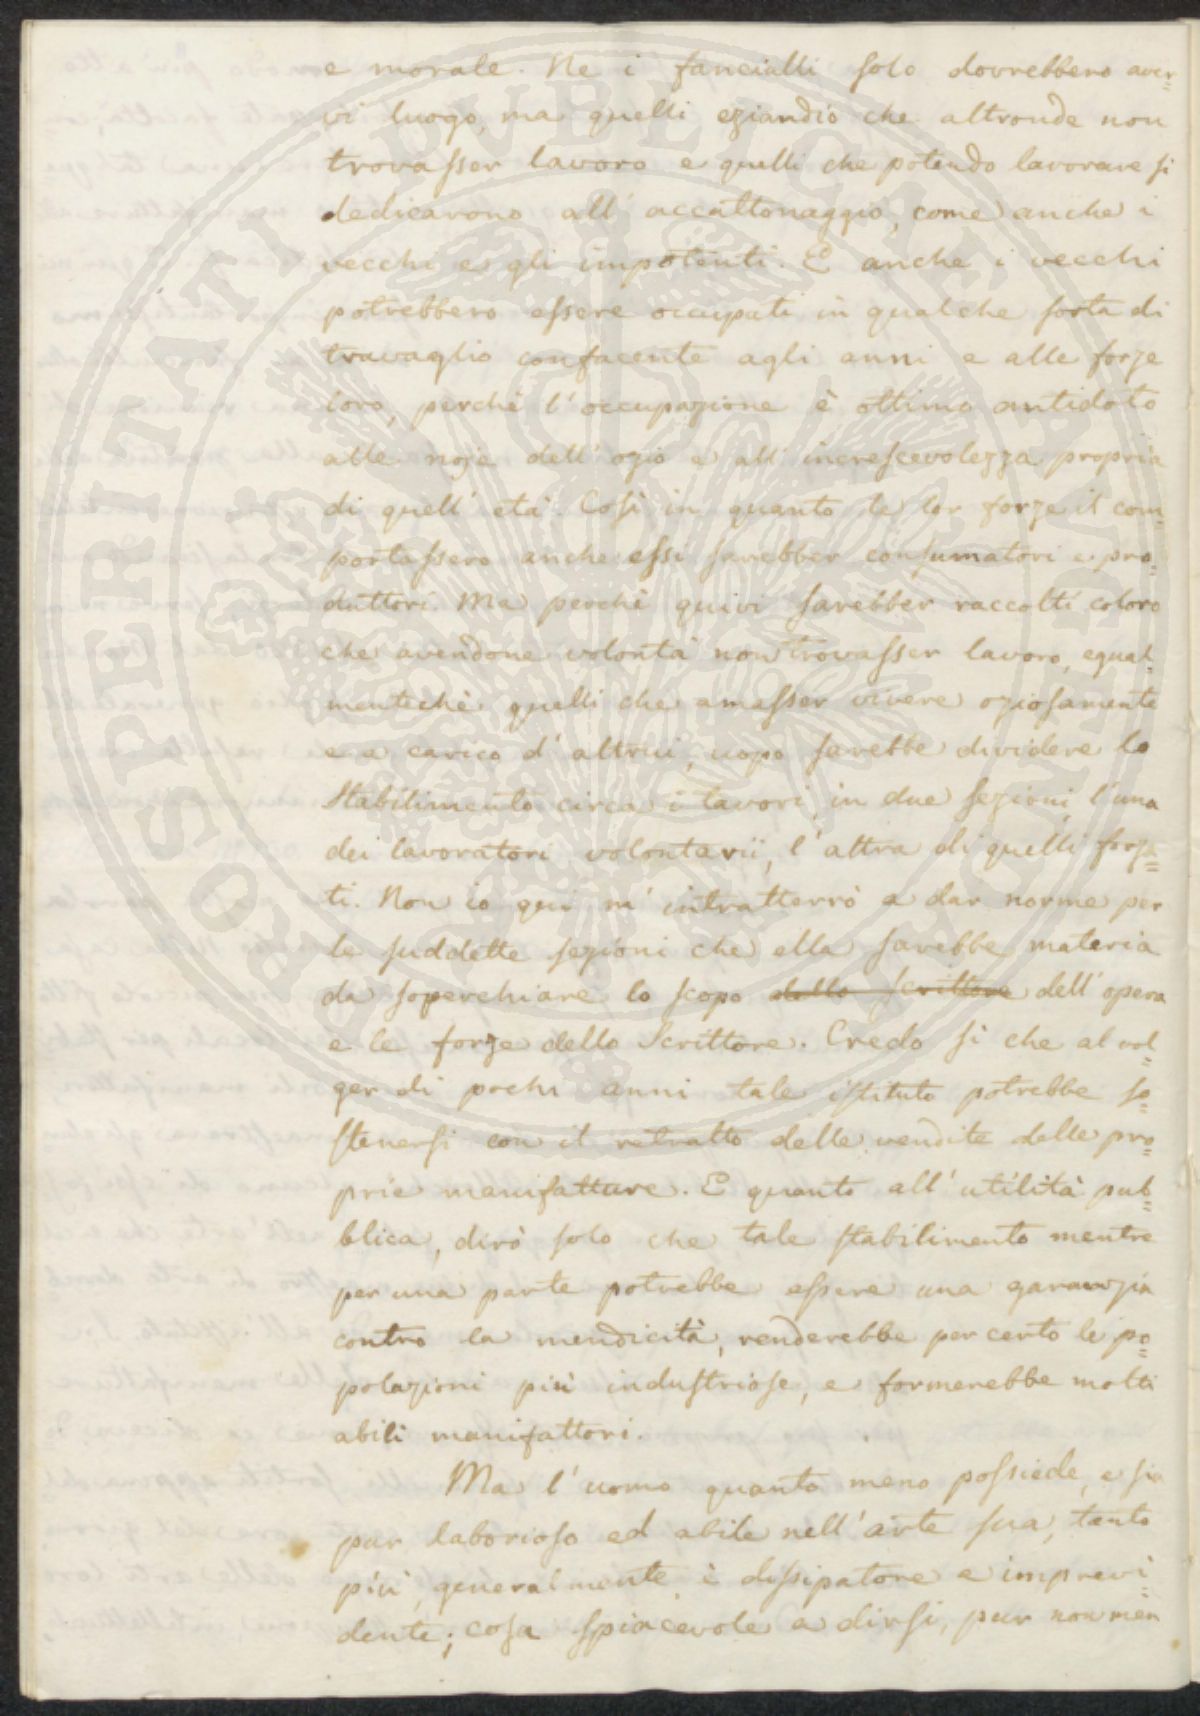 e morale. Ne i fancialli solo dovrebbero aver=
vi luogo, ma quelli eziandio che altronde non
trovasser lavoro e quelli che potendo lavorare si
dedicarono all' accattonaggio, come anche i
vecchi e gli impotenti. E anche i vecchi
potrebbero essere occupati in qualche sorta di
travaglio confacente agli anni e alle forze
loro, perchè l' occupazione è ottimo antidoto
alle noje dell' ozio e all' increscevolezza propria
di quell' età. Così in quanto le lor forze il com=
portassero anche essi sarebber consumatori e pro=
duttori. Ma perchè quivi sarebber raccolti coloro
che avendone volontà non trovasser lavoro, equal=
mentechè quelli che amasser vivere oziosamente
e a carico d' altrui, uopo sarebbe dividere lo
Stabilimento circa i lavori, in due sezioni, l' una
dei lavoratori volontarii, l' altra di quelli forza=
ti. Non io qui m' intratterrò a dar norme per
le suddette sezioni che ella sarebbe materia
da soperchiare lo scopo dello scrittore dell' opera
e le forze dello Scrittore. Credo sì che al vol=
ger di pochi anni tale istituto potrebbe so=
stenersi con il retratto delle vendite delle pro=
prie manifatture. E quanto all' utilità pub=
blica, dirò solo che tale stabilimento mentre
per una parte potrebbe essere una garanzia
contro la mendicità, renderebbe per certo le po=
polazioni più industriose, e formerebbe molti
abili manifattori.
Ma l' uomo quanto meno possiede, e sia
pur laborioso ed abile nell' arte sua, tanto
più, generalmente è dissipatore e imprevi=
dente; cosa spiacevole a dirsi, pur non men
PROSPERITATI PUBLICAE AUGENDAE